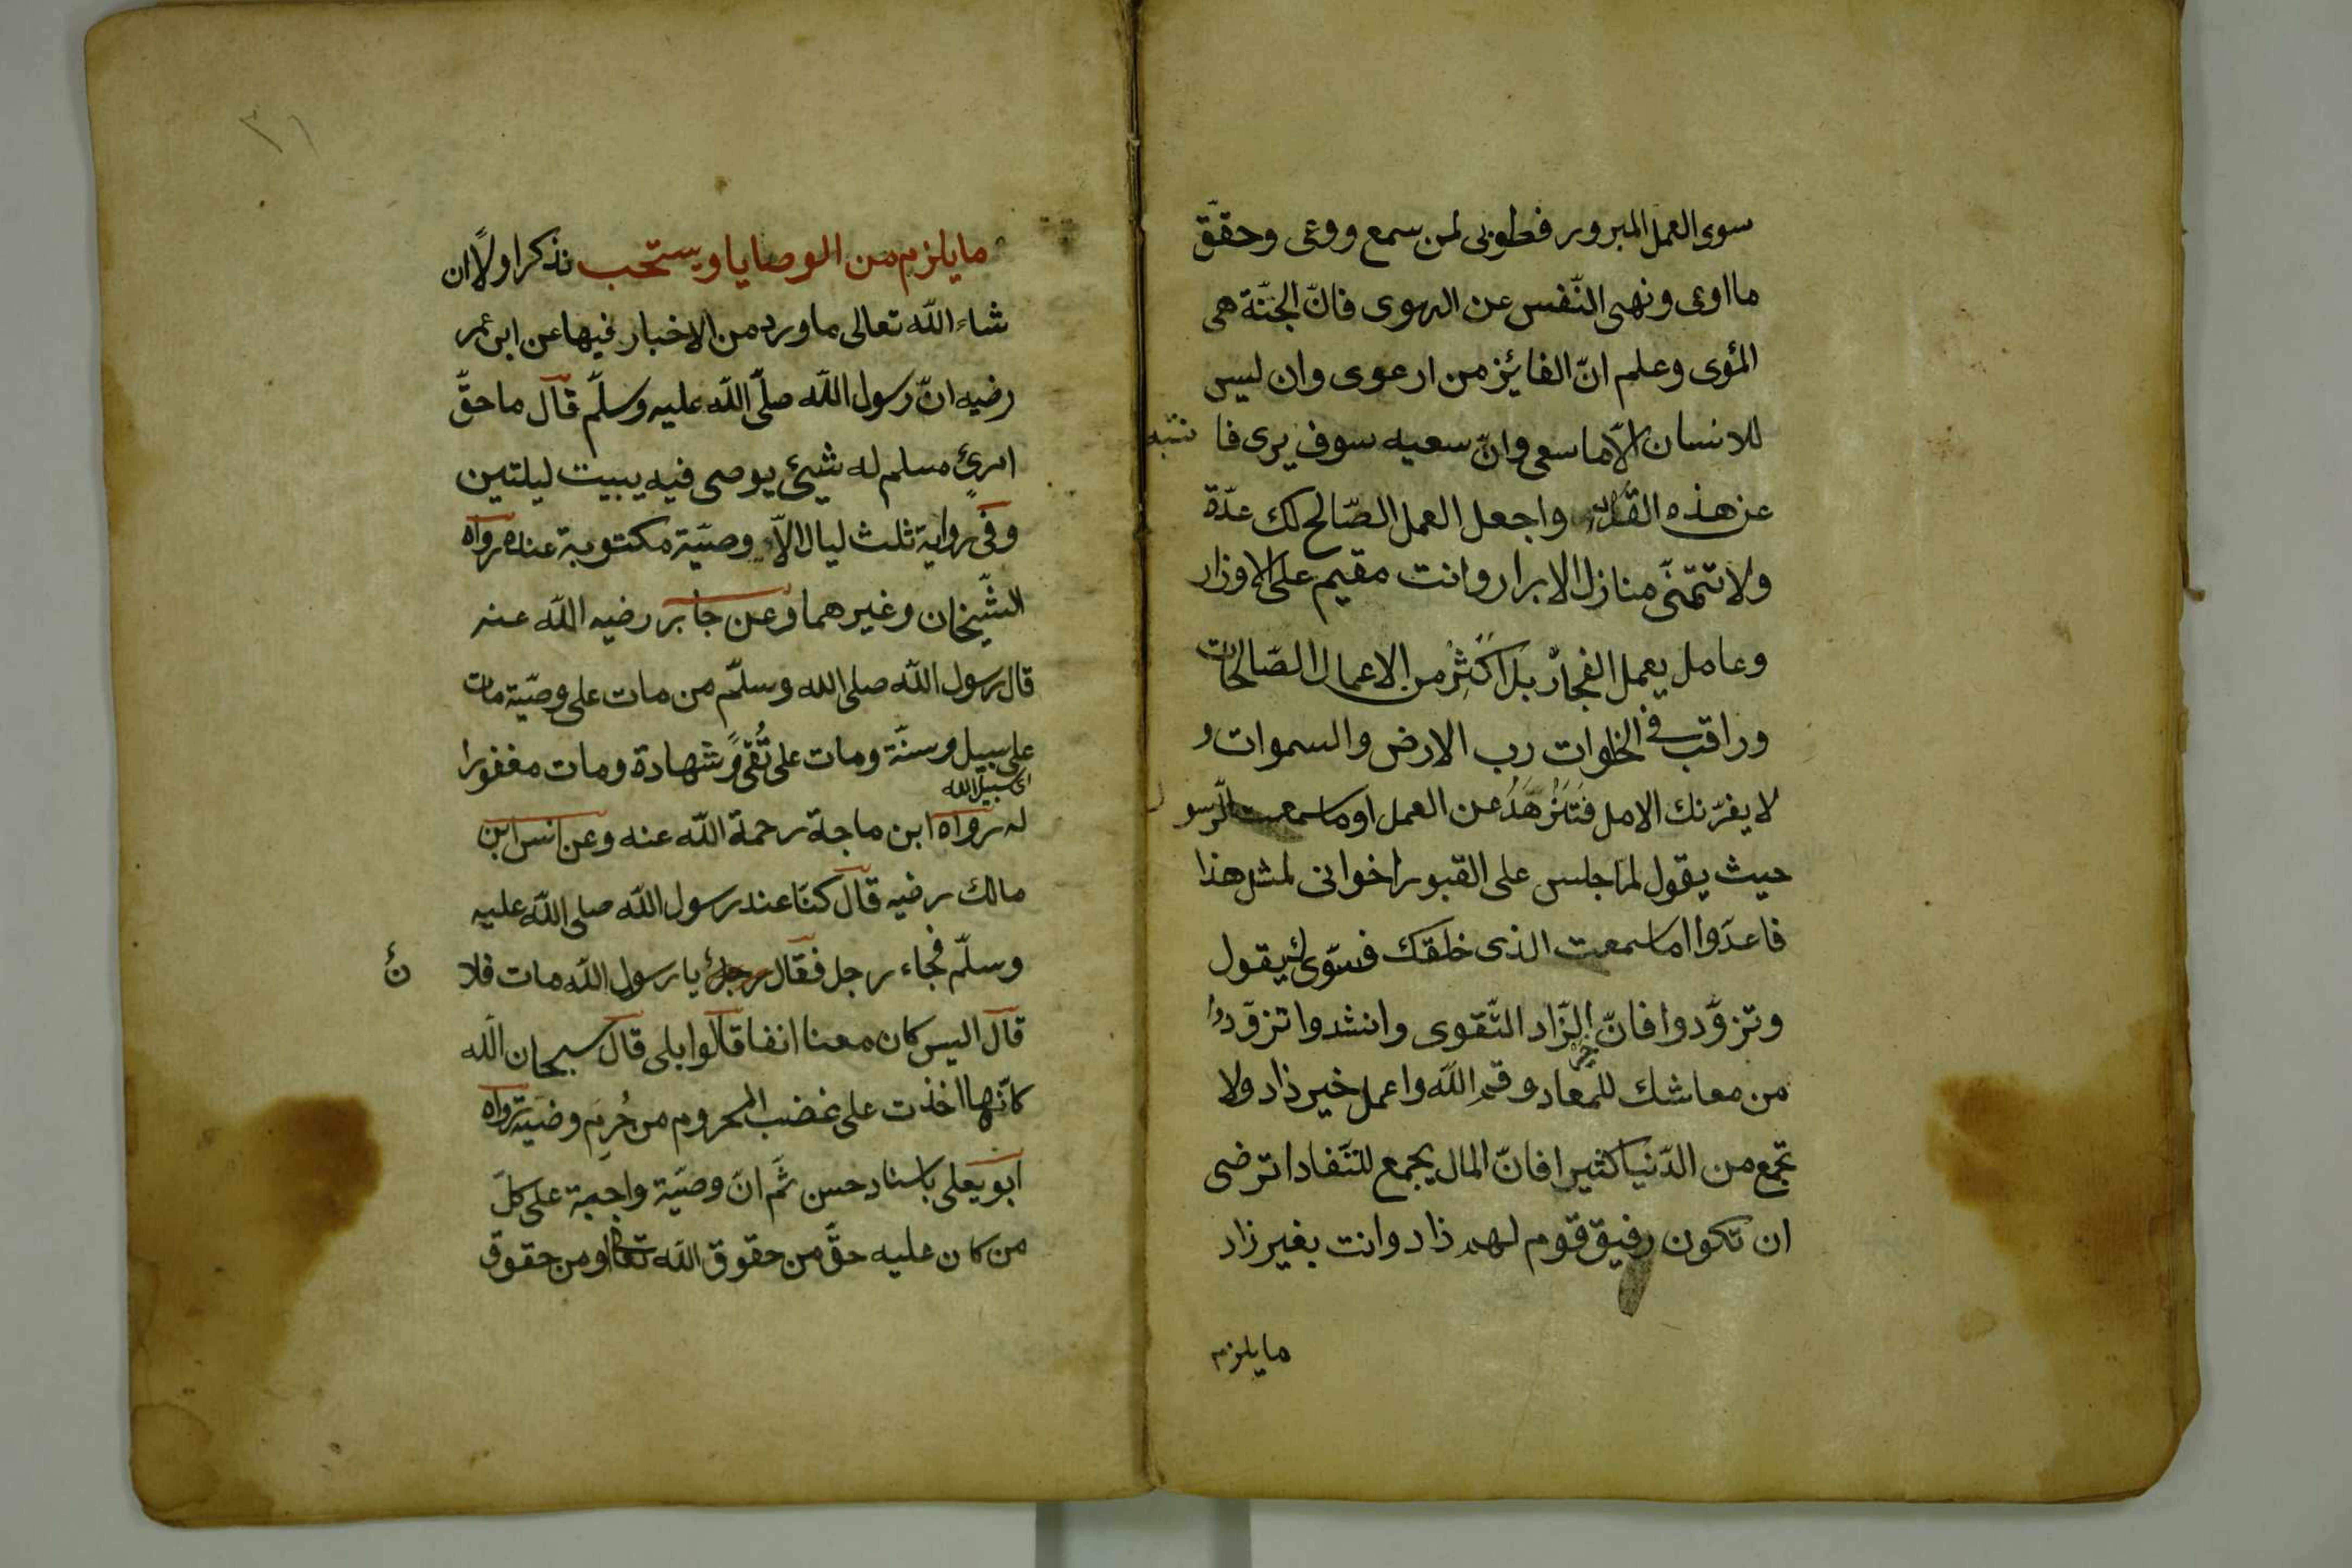 سوى العمل المبرور فطوبى لمن سمع ووعى وحقّق
ما اوى ونهى النّفس عن الهوى فانّ الجنّة هى
المؤى وعلم انّ الفائز من ارعوى وان ليس
للانسان الّا ما سعى وانّ سعيه سوف يرى فا نتبه
عن هذه واجعل العمل الصّالح لك عدّة
ولا تتمنّى منازل الابرار وانت مقيم على الاوزار
وعامل يعمل الفجار بل اكثر من الاعمال الصّالحات
وراقب فى الخلوات رب الارض والسموات و
لا يغرّنك الامل فتزهد عن العمل او ما سمعت الرّسو ل
حيث يقول لمّا جلس على القبور اخوانى لمثل هذا
فاعدّوا اما سمعت الذى خلقك فسوّى لك يقول
وتزوّدوا فانّ خير الزّاد التّقوى وانشدوا تزوّدوا
من معاشك للمعاد وقم الله واعمل خير ذاد ولا
تجمع من الدّنيا كثيرا فانّ المال يجمع للنّفاد اترضى
ان تكون رفيق قوم لهم ذاد وانت بغير زاد
مايلزم
٣١
مايلزم من الوصايا ويستحب نذكر اولًا ان
شاء الله تعالى ما ورد من الاخبار فيها عن ابن عمر
رضيه انّ رسول الله صلّى الله عليه وسلّم قال ما حقّ
امرئ مسلم له شيئ يوصى فيه يبيت ليلتين
وفى رواية ثلث ليال الّا وصيّة مكتوبة عنده رواه
الشّيخان وغيرهما وعن جابر رضيه الله عنه
قال رسول الله صلى الله وسلّم من مات على وصيّة مات
على سبيل وسنّة ومات على تُقًى وشهادة ومات مغفورا
اى سبيل الله
له رواه ابن ماجة رحمة الله عنه وعن انس ابن
مالك رضيه قال كنّا عند رسول الله صلى الله عليه
وسلّم فجاء رجل فقال رجل يا رسول الله مات فلا ن
قال اليس كان معنا انفا قالوا بلى قال سبحان الله
كانّها اخذت على غضب المحروم من حُرِم وصيّة رواه
ابو يعلى باسناد حسن ثمّ انّ وصيّة واجبة على كلّ
من كان عليه حقّ من حقوق الله تعالى او من حقوق